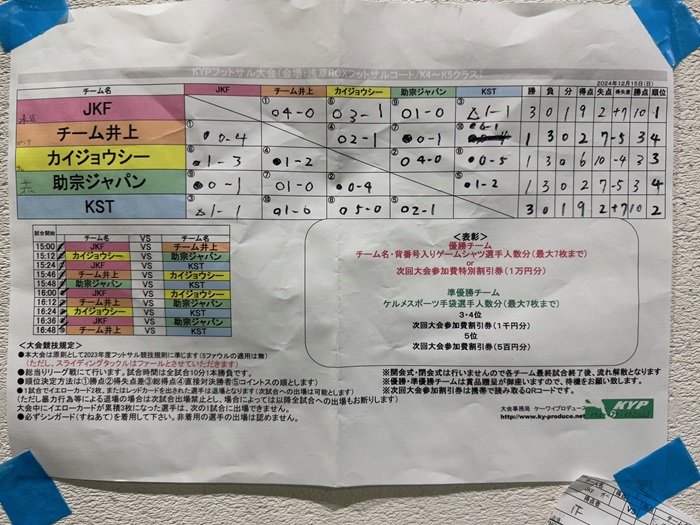 KYPフットサル大会(会場:浅草ROXフットサルコート/K4~K5クラス)
2024年12月15日(日)
チーム名 JKF チーム井上 カイジョウシー 助宗ジャパン KST 勝 負 分 得点 失点 得失差 勝点 順位
JKF ① ○4-0 ⑥ ○3-1 ⑨ ○1-0 ③ △1-1 3 0 1 9 2 +7 10 1
チーム井上 ① ●0-4 ④ ○2-1 ⑦ ●0-1 ⑩ ●0-1 1 3 0 2 7 -5 3 4
カイジョウシー ⑥ ●1-3 ④ ●1-2 ② ○4-0 ⑧ ●0-5 1 3 0 6 10 -4 3 3
助宗ジャパン ⑨ ●0-1 ⑦ ○1-0 ② ●0-4 ⑤ ●1-2 1 3 0 2 7 -5 3 4
KST ③ △1-1 ⑩ ○1-0 ⑧ ○5-0 ⑤ ○2-1 3 0 1 9 2 +7 10 2
試合開始 チーム名 VS チーム名
15:00 JKF VS チーム井上
15:12 カイジョウシー VS 助宗ジャパン
15:24 JKF VS KST
15:46 チーム井上 VS カイジョウシー
15:48 助宗ジャパン VS KST
16:00 JKF VS カイジョウシー
16:12 チーム井上 VS 助宗ジャパン
16:24 カイジョウシー VS KST
16:36 JKF VS 助宗ジャパン
16:48 チーム井上 VS KST
<表彰>
優勝チーム
チーム名・背番号入りゲームシャツ選手人数分(最大7枚まで)
or
次回大会参加費特別割引券(1万円分)
準優勝チーム
ケルメスポーツ手袋選手人数分(最大7枚まで)
3・4位
次回大会参加費割引券(1千円分)
5位
次回大会参加費割引券(5百円分)
<大会競技規定>
●本大会は原則として2023年度フットサル競技規則に準じます(5ファウルの適用は無)
(ただし、スライディングタックルはファールとさせていただきます)
●総当りリーグ戦にて行います。試合時間は全試合10分1本勝負です。
●順位決定方法は①勝点②得失点差③総得点④直接対決勝者⑤コイントスの順とします)
●1試合でイエローカード2枚、またはレッドカードを出された選手は退場となります(次試合への出場は可能とします)
(ただし暴力行為等による退場の場合は次試合出場禁止とし、場合によっては以降全試合への出場もお断りします)
大会中にイエローカードが累積3枚になった選手は、次の1試合に出場できません。
●必ずシンガード(すねあて)を着用して下さい。非着用の選手の出場は認めません。
※開会式・閉会式は行いませんので各チーム最終試合終了後、流れ解散となります
※優勝・準優勝チームは賞品贈呈が御座いますので、待機をお願い致します。
※次回大会参加費割引券は携帯で読み取るQRコードです。
大会事務局 ケーワイプロデュース
http://www.ky-produce.net
KYP